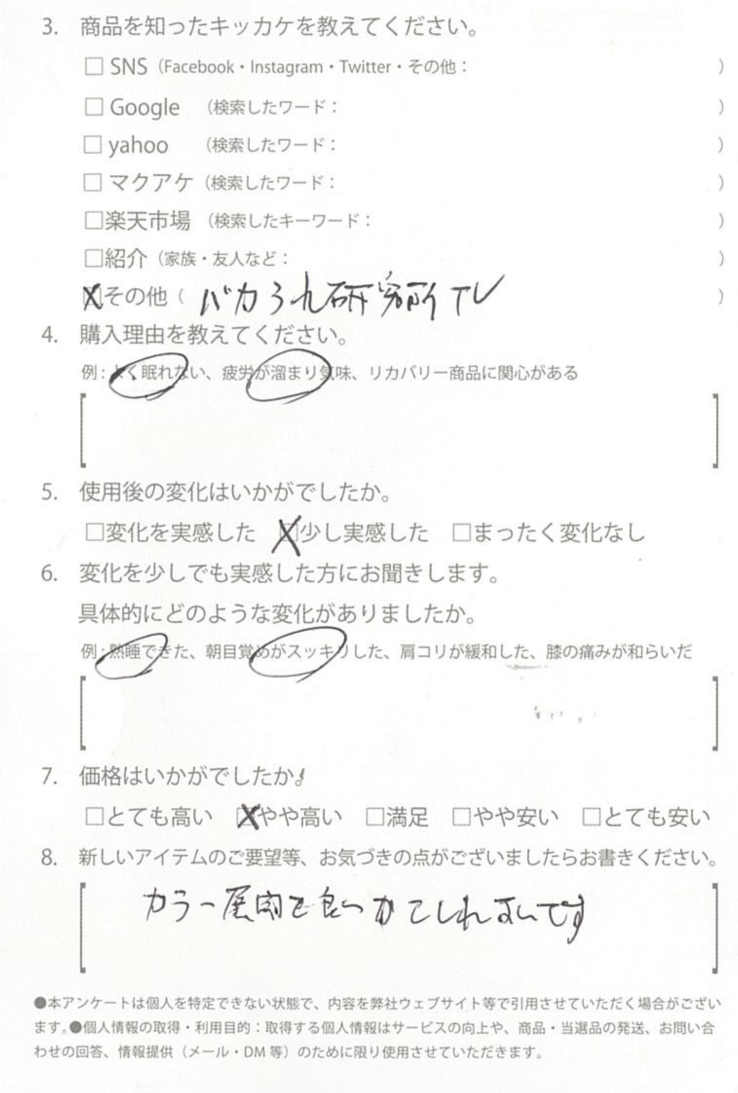 3. 商品を知ったキッカケを教えてください。
□ SNS（Facebook・Instagram・Twitter・その他： ）
□ Google （検索したワード： ）
□ yahoo （検索したワード： ）
□ マクアケ（検索したワード： ）
□楽天市場 （検索したキーワード： ）
□紹介（家族・友人など： ）
☒その他（ バカうれ研究所TV ）
4. 購入理由を教えてください。
例：よく眠れない、疲労が溜まり気味、リカバリー商品に関心がある
5. 使用後の変化はいかがでしたか。
□変化を実感した ☒少し実感した □まったく変化なし
6. 変化を少しでも実感した方にお聞きします。
具体的にどのような変化がありましたか。
例：熟睡できた、朝目覚めがスッキリした、肩コリが緩和した、膝の痛みが和らいだ
7. 価格はいかがでしたか。
□とても高い ☒やや高い □満足 □やや安い □とても安い
8. 新しいアイテムのご要望等、お気づきの点がございましたらお書きください。
カラー展開も良いかもしれないです
●本アンケートは個人を特定できない状態で、内容を弊社ウェブサイト等で引用させていただく場合がござい
ます。●個人情報の取得・利用目的：取得する個人情報はサービスの向上や、商品・当選品の発送、お問い合
わせの回答、情報提供（メール・DM 等）のために限り使用させていただきます。